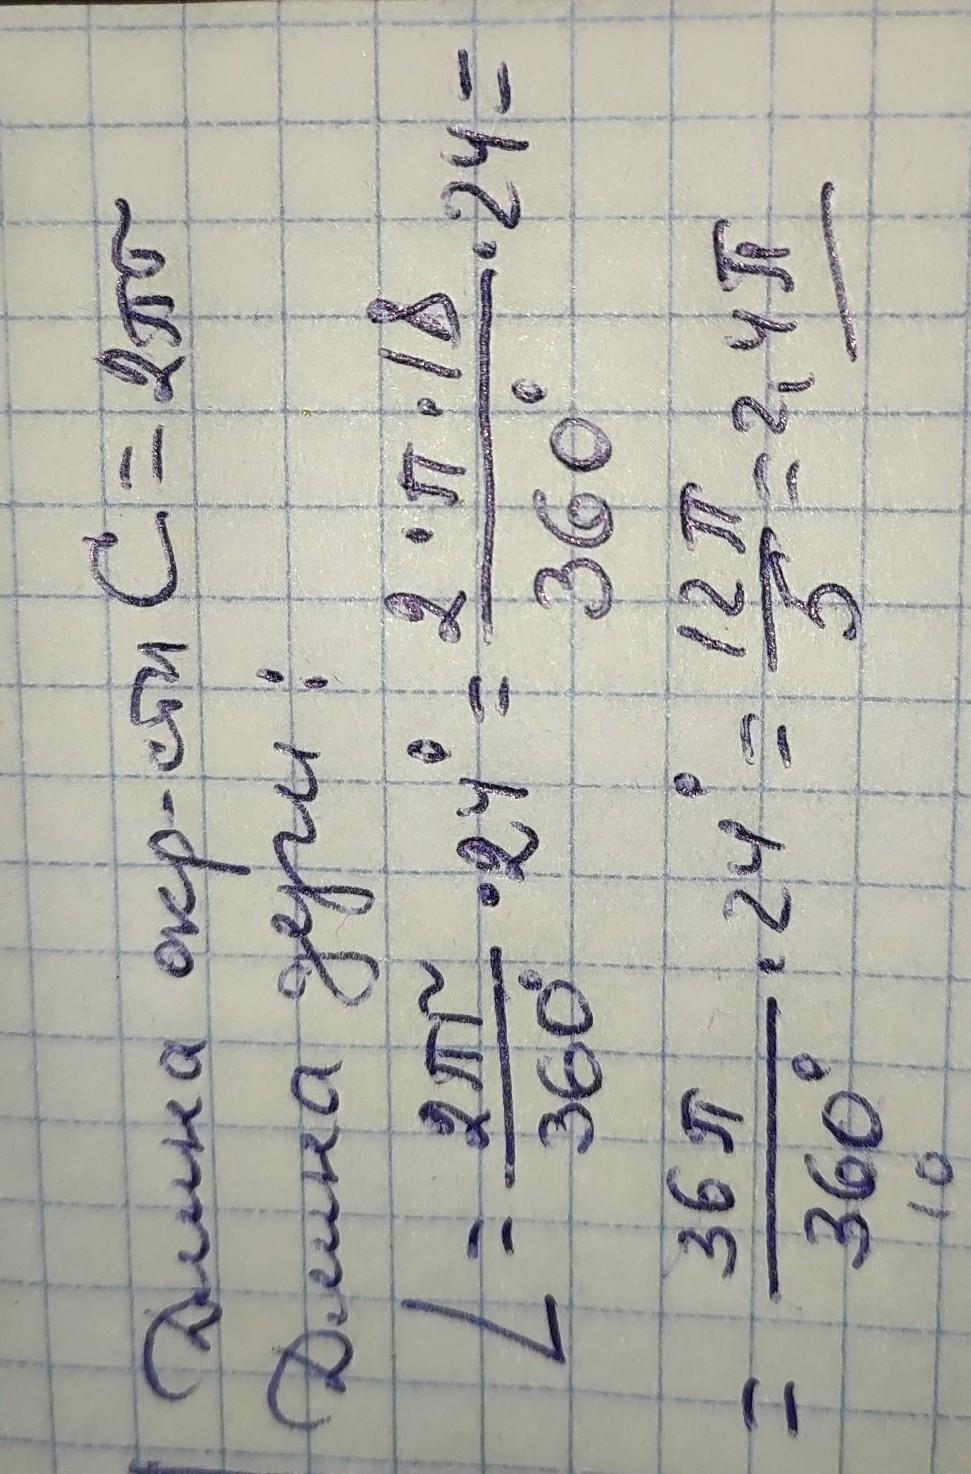 Длина окр-сти C = 2πr
Длина дуги:
L = 2πr/360° · 24° = 2·π·18/360° · 24 =
= 36π/360° · 24° = 12π/5 = 2,4π
10